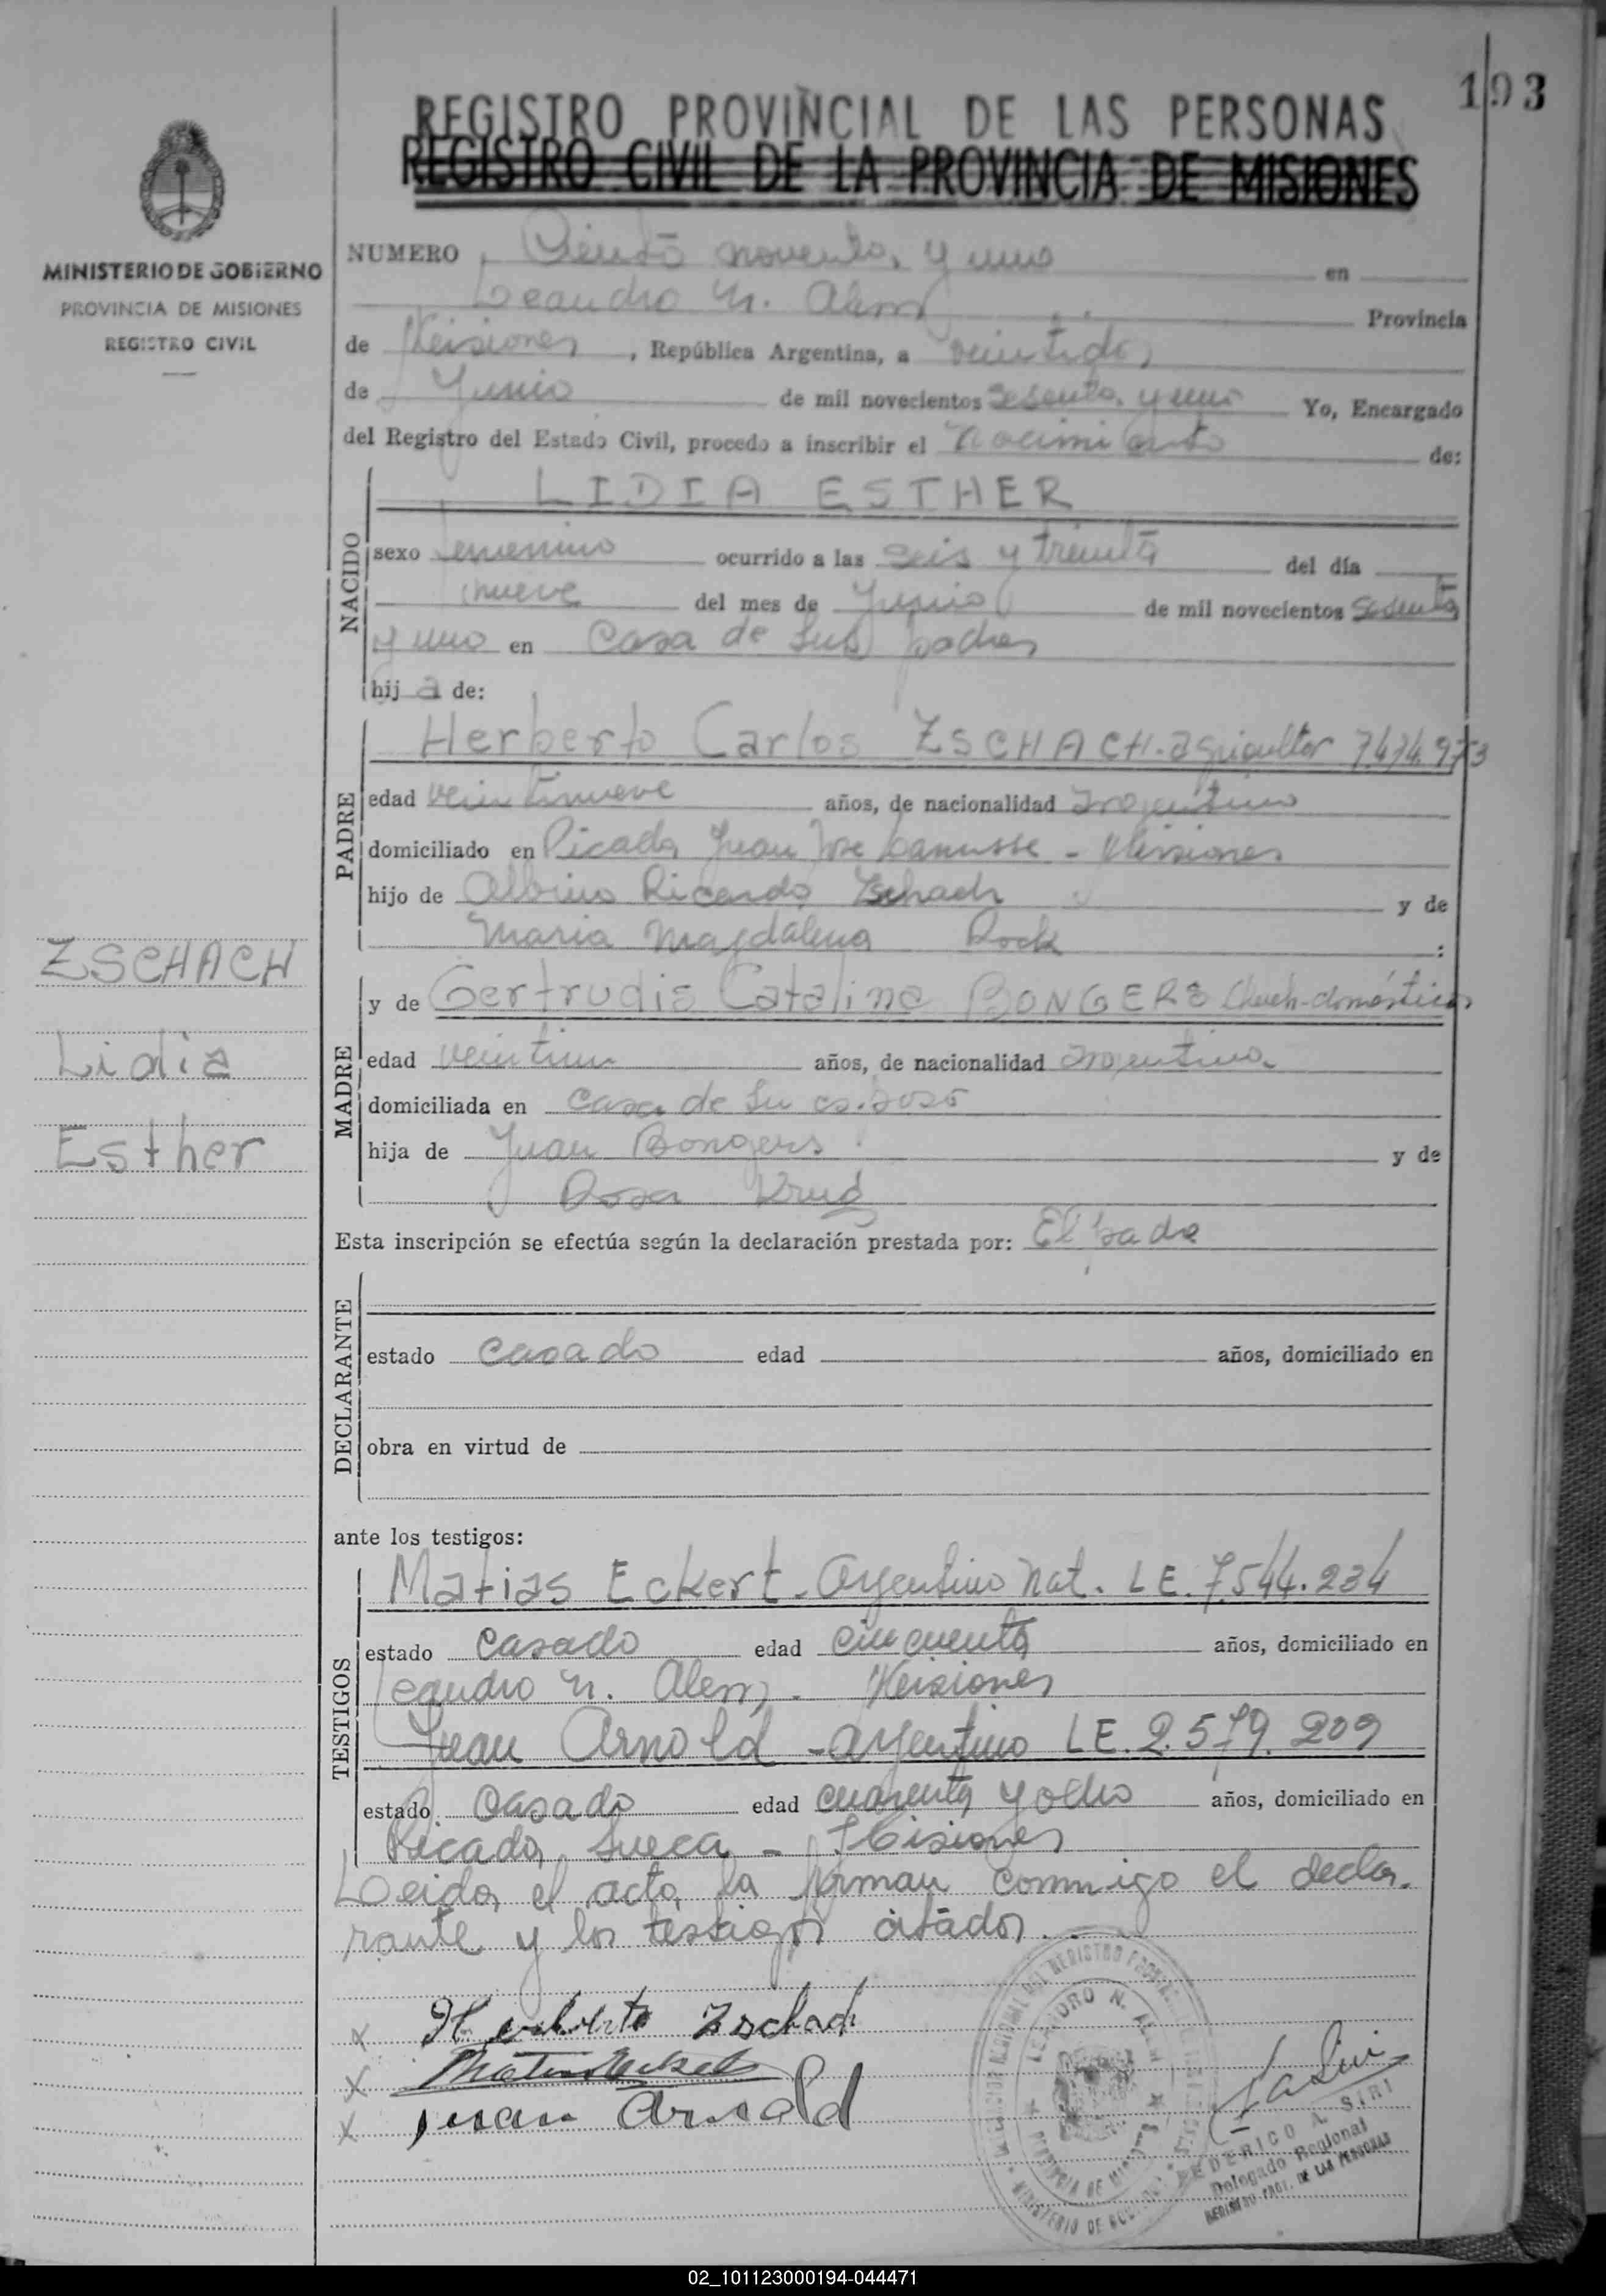 193
REGISTRO PROVINCIAL DE LAS PERSONAS
REGISTRO CIVIL DE LA PROVINCIA DE MISIONES
MINISTERIO DE GOBIERNO
PROVINCIA DE MISIONES
REGISTRO CIVIL
NUMERO Ciento noventa y uno en
Leandro N. Alem Provincia
de Misiones, República Argentina, a veintidos
de Junio de mil novecientos sesenta y uno Yo, Encargado
del Registro del Estado Civil, procedo a inscribir el nacimiento de:
NACIDO
LIDIA ESTHER
sexo femenino ocurrido a las seis y treinta del día
nueve del mes de Junio de mil novecientos sesenta
y uno en Casa de sus padres
hija de:
PADRE
Herberto Carlos ZSCHACH-agricultor 7.474.973
edad veintinueve años, de nacionalidad argentino
domiciliado en Picada Juan José Lanusse - Misiones
hijo de Albino Ricardo Zschach y de
Maria Magdalena Rock :
ZSCHACH
Lidia
Esther
MADRE
y de Gertrudis Catalina BONGERS domésticos
edad veintiun años, de nacionalidad argentina
domiciliada en casa de su esposo
hija de Juan Bongers y de
Rosa
Esta inscripción se efectúa según la declaración prestada por: El padre
DECLARANTE
estado casado edad años, domiciliado en
obra en virtud de
ante los testigos:
TESTIGOS
Matias Eckert - Argentino Nat. LE. 7.544.234
estado casado edad cincuenta años, domiciliado en
Leandro N. Alem - Misiones
Juan Arnold - argentino LE. 2.579.209
estado casado edad cuarenta y ocho años, domiciliado en
Picada Sueca - Misiones
Leida el acta la firman conmigo el decla-
rante y los testigos citados
x Herberto Zschach
x
x Juan Arnold
LEANDRO N. ALEM
PROVINCIA DE MISIONES
FEDERICO A. SIRI
Delegado Regional
REGISTRO PROV. DE LAS PERSONAS
02_101123000194-044471